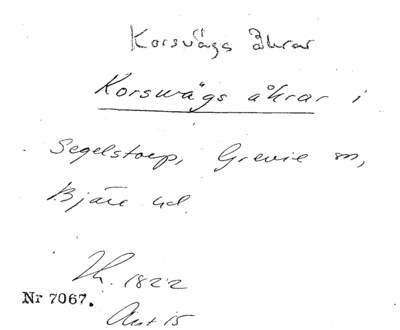 Korsvägs åkrar
Korswägs åkrar i
Segelstorp, Grevie sn,
Bjäre hd.
1822
Nr 7067.
Akt 15